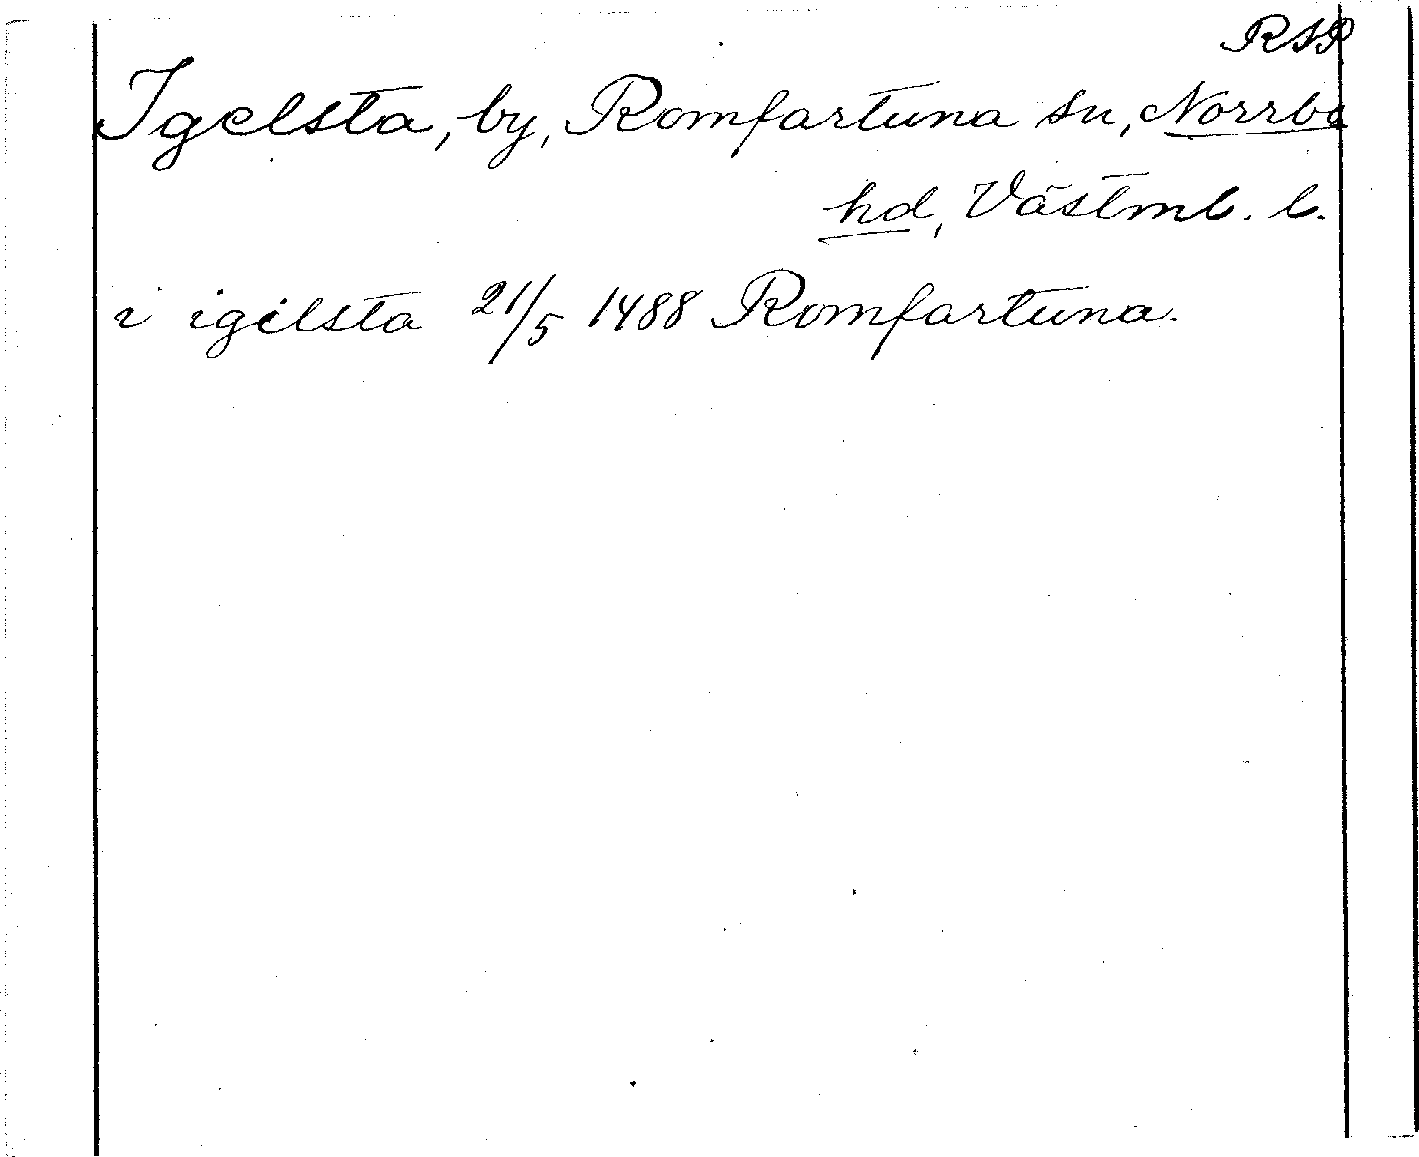 RAP
Igelsta, by, Romfartuna sn, Norrbo
hd, Västml. l.
i igilsta 21/5 1488 Romfartuna.